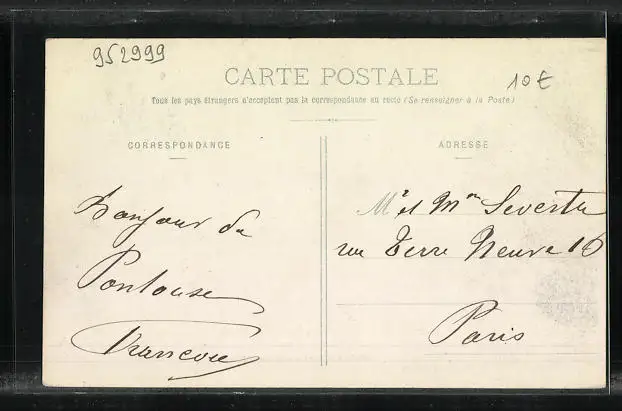 952999
CARTE POSTALE
10€
Tous les pays étrangers n'acceptent pas la correspondance au recto (Se renseigner à la Poste)
CORRESPONDANCE
ADRESSE
Bonjour de
Toulouse
Mr et Mme
rue Terre Neuve 16
Paris